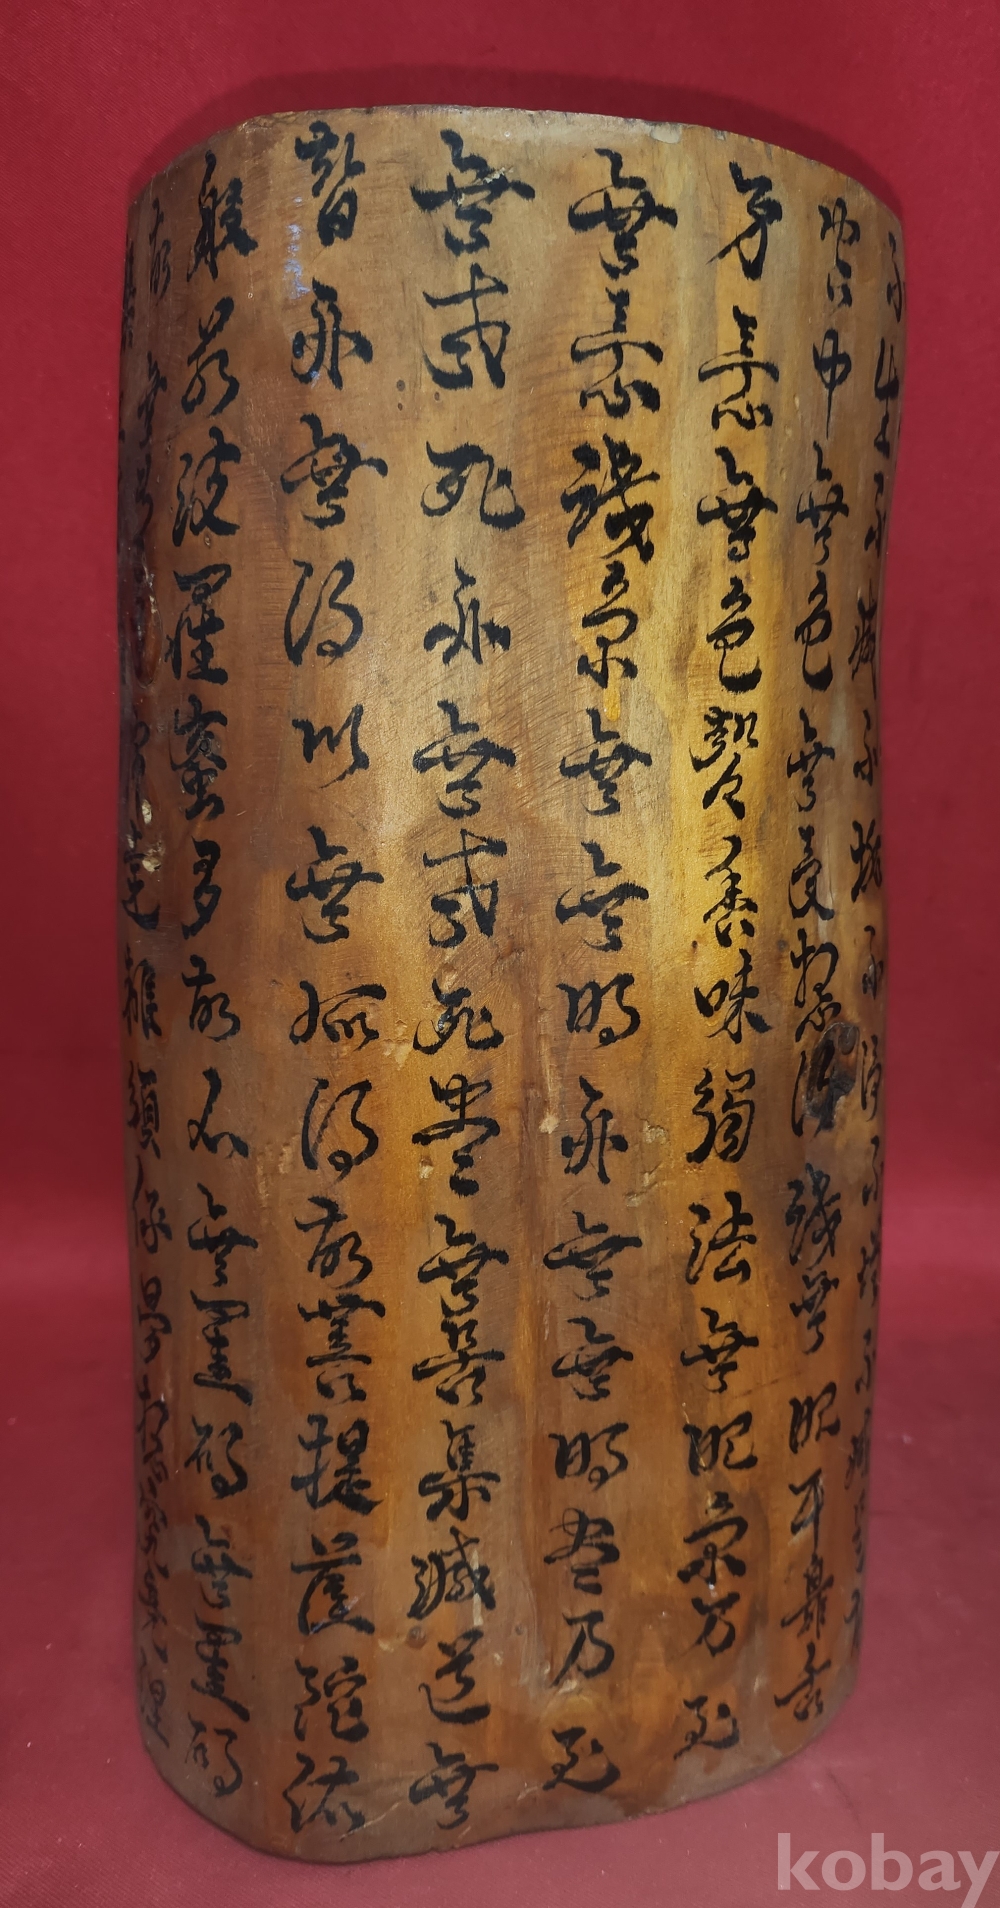 不生不滅不垢不淨不增不減
空中無色無受想行識無眼耳鼻舌
身意無色聲香味觸法無眼界乃至
無意識界無無明亦無無明盡乃至
無老死亦無老死盡無苦集滅道無
智亦無得以無所得故菩提薩陀依
般若波羅蜜多故心無罣碍無罣碍
故無有恐怖遠離顛倒夢想究竟涅
槃
kobay